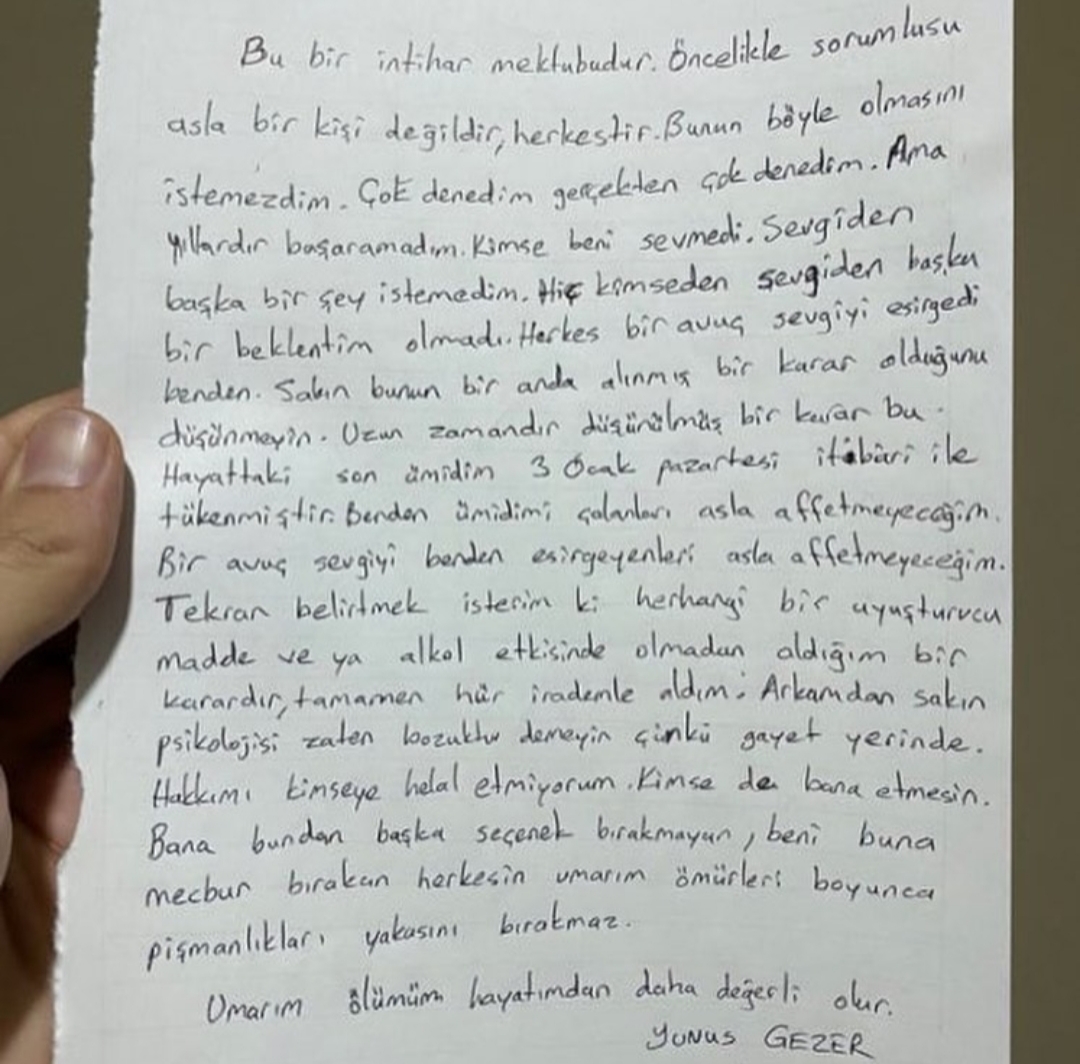 Bu bir intihar mektubudur. Öncelikle sorumlusu
asla bir kişi değildir, herkestir. Bunun böyle olmasını
istemezdim. Çok denedim gerçekten çok denedim. Ama
yıllardır başaramadım. Kimse beni sevmedi. Sevgiden
başka bir şey istemedim. Hiç kimseden sevgiden başka
bir beklentim olmadı. Herkes bir avuç sevgiyi esirgedi
benden. Sakın bunun bir anda alınmış bir karar olduğunu
düşünmeyin. Uzun zamandır düşünülmüş bir karar bu.
Hayattaki son ümidim 3 Ocak pazartesi itibâri ile
tükenmiştir. Benden ümidimi çalanları asla affetmeyeceğim.
Bir avuç sevgiyi benden esirgeyenleri asla affetmeyeceğim.
Tekrar belirtmek isterim ki herhangi bir uyuşturucu
madde ve ya alkol etkisinde olmadan aldığım bir
karardır, tamamen hür irademle aldım. Arkamdan sakın
psikolojisi zaten bozuktu demeyin çünkü gayet yerinde.
Hakkımı kimseye helal etmiyorum. Kimse de bana etmesin.
Bana bundan başka seçenek bırakmayan, beni buna
mecbur bırakan herkesin umarım ömürleri boyunca
pişmanlıkları yakasını bırakmaz.
Umarım ölümüm hayatımdan daha değerli olur.
YUNUS GEZER